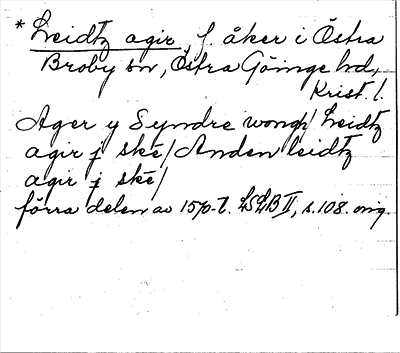 * Leidtz agir, f. åker i Östra
Broby sn, Östra Göinge hd,
Krist. l.
Ager y Syndre wongh/ Leidtz
agir j skē/ Anden leidtz
agir j skē/
förra delen av 1570-t. LSLB II, s. 108. orig.